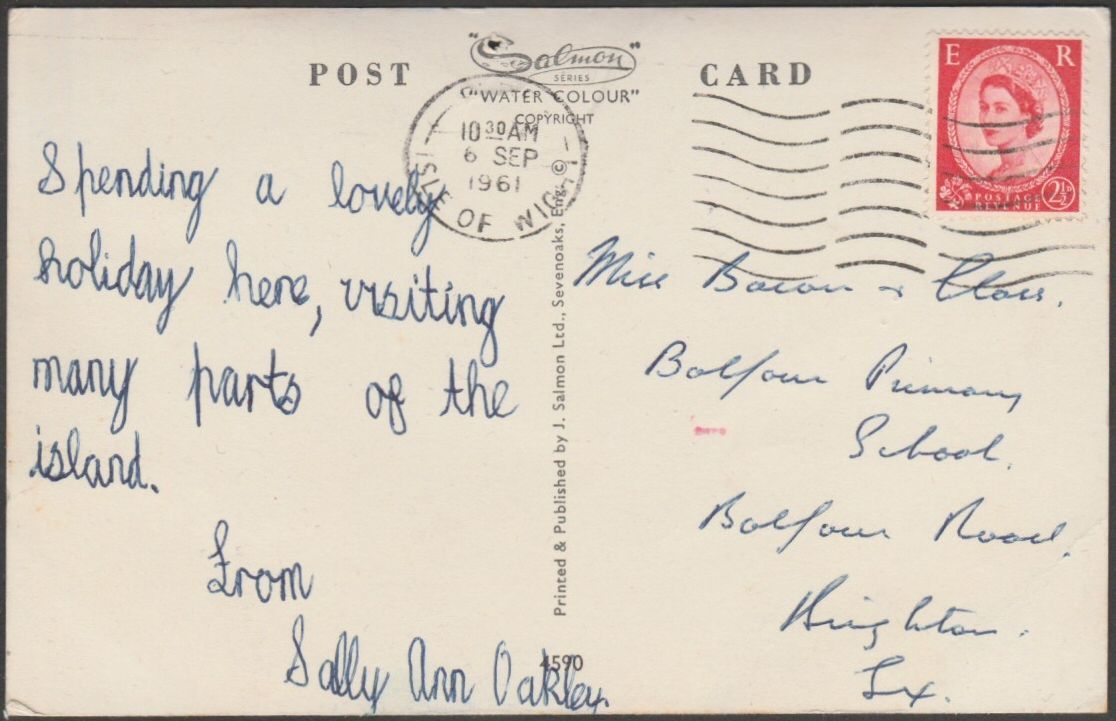 POST CARD
"Salmon"
SERIES
"WATER COLOUR"
COPYRIGHT
E R
POSTAGE
REVENUE
2½D
10 30 AM
6 SEP
1961
ISLE OF WIGHT
Spending a lovely
holiday here, visiting
many parts of the
island.
From
Sally Ann Oakley.
4590
Printed & Published by J. Salmon Ltd., Sevenoaks, Eng. ©
Miss Bacon & Class.
Balfour Primary
School.
Balfour Road,
Brighton.
Sx.